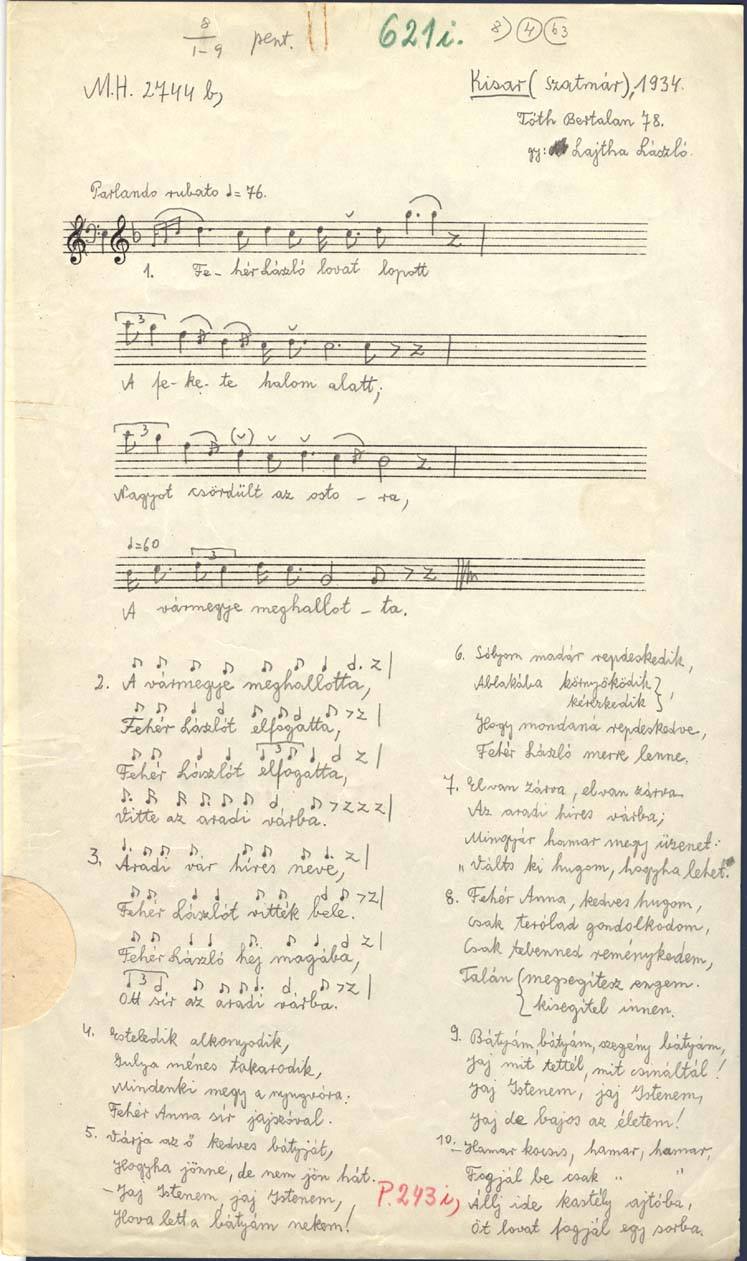 8
1-9
pent.
621i.
8) 4 63
M.H. 2744 b,
Kisar (Szatmár), 1934.
Tóth Bertalan 78.
gy: Lajtha László.
Parlando rubato = 76.
1. Fe- hér László lovat lopott
3
A fe- ke- te halom alatt;
3
Nagyot csördült az osto - ra,
=60
3
A vármegye meghallot - ta.
2. A vármegye meghallotta,
Fehér Lászlót elfogatta,
3
Fehér Lászlót elfogatta,
Vitte az aradi várba.
3. Aradi vár híres neve,
Fehér Lászlót vitték bele.
Fehér László hej magába,
3
Ott sír az aradi várba.
4. Esteledik alkonyodik,
Gulya ménes takarodik,
Mindenki megy a nyugvóra:
Fehér Anna sír jajszóval.
5. Várja az ő kedves bátyját,
Hogyha jönne, de nem jön hát.
- Jaj Istenem, jaj Istenem,
Hova lett a bátyám nekem!
P. 243 i,
6. Sólyom madár repdeskedik,
Ablakába környöködik,
kérezkedik
Hogy mondaná repdeskedve,
Fehér László merre lenne.
7. El van zárva, el van zárva
Az aradi híres várba;
Mingyár hamar megy üzenet:
"Válts ki hugom, hogyha lehet."
8. Fehér Anna, kedves hugom,
Csak terólad gondolkodom,
Csak tebenned reménykedem,
Talán megsegítesz engem.
kisegítel innen.
9. Bátyám, bátyám, szegény bátyám,
Jaj mit tettél, mit csináltál!
Jaj Istenem, jaj Istenem,
Jaj de bajos az életem!
10. - Hamar kocsis, hamar, hamar,
Fogjál be csak " "
Állj ide kastély ajtóba,
Öt lovat fogjál egy sorba.